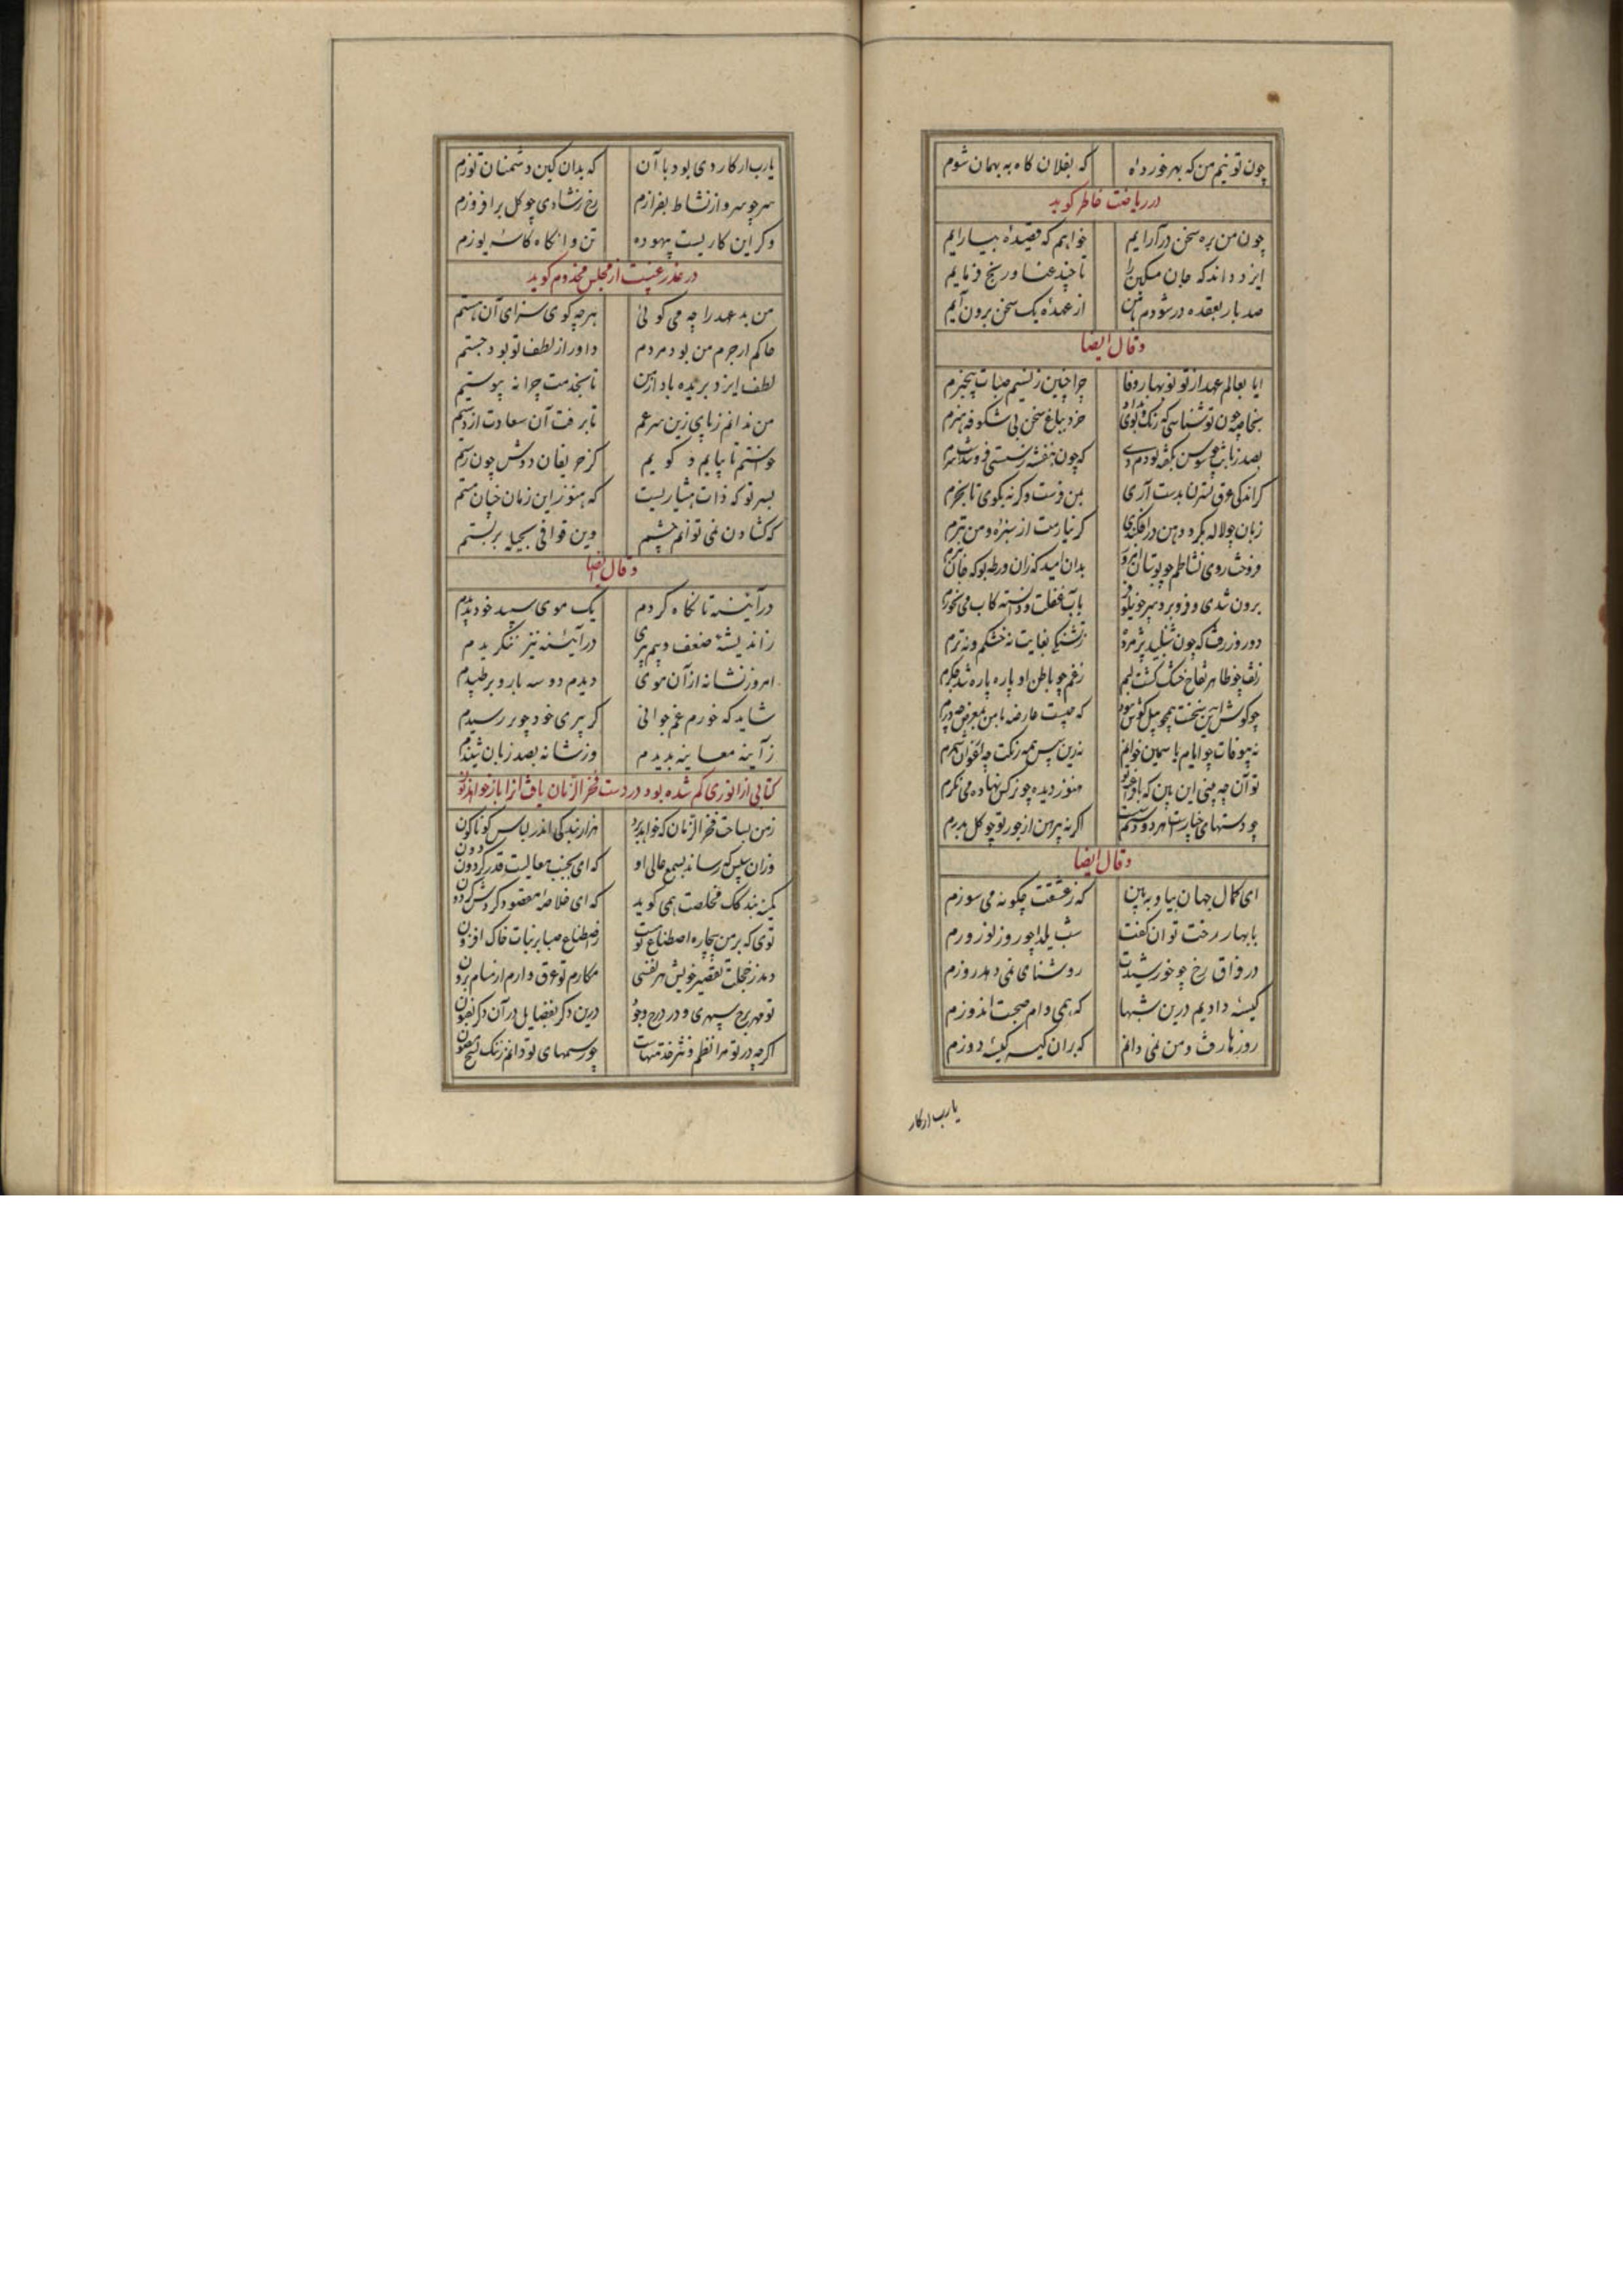 چون تو نیم من که بهر خورد اه که بفلان کاه به بهمان شوم
در ریاضت خاطر کوید
چون من بره سخن درآرایم خواهم که قصیدهٔ بیارایم
ایزد داند که جان مسکین را تا چند عنا و رنج فرمایم
صد بار بعقده در شوم تا من از عهدهٔ یک سخن برون آیم
و قال ایضا
ایا بعالم عهد از تو نوبهار وفا چرا چنین ز نسیم صبات بیخبرم
بخاصه چون تو شناسی که رنک و بوی نداد خرد بباغ سخن بی شکوفه هنرم
بصد زبانت چو سوسن بکفته بودم دی که چون بنفشه ز مستی فرو شدست سرم
کر اندکی عرق نسترن بدست آری بمن فرست و کرنه بکوی تا بخرم
زبان چو لاله بکرد دهن درافکندی کر نیارمت از سبزه و من تبرم
فروخت روی نشاطم چو بوستان
بدان امید که زان ورطه بو که جان ببرم
برون شدی و فرو برد سر چو نیلوفر بآب غفلت و دانسته کاب می نخورم
دو روز رفت که چون شنبلید پژمرده ز تشنکی بغایت نه خشکم و نه ترم
ز تف چو ظاهر تفاح خشک کشت لبم ز غم چو باطن او پاره پاره شد جکرم
نه بیوفات چو ایام یاسمین خوانم
تو آن چه بینی این بین که
هنوز دیده چو نرکس نهاده می نکرم
چو دستهای خیارست هر دو دستم اکر نه پیرهن از جور تو چو کل بدرم
و قال ایضا
ای کمال جهان بیا و ببین که ز عشقت چکونه می سوزم
با بهار رخت توان کفت شب یلدا چو روز نوروزم
در فراق رخ چو خورشیدت روشنای نمی دهد روزم
کیسهٔ دادیم درین شبها که همی دام صحبت اندوزم
روزها رفت و من نمی دانم که بران کیسه کیسه دوزم
یارب ار کار
یارب ار کار دی بود با آن که بدان کین دشمنان توزم
سر چو سرو از نشاط بفرازم رخ ز شادی چو کل برافروزم
وکر این کاریست بیهوده تن و انکاه کاسه یوزم
در عذر غیبت از مجلس مخدوم کوید
من بد عهد را چه می کوئی هرچه کوی سزای آن هستم
حاکم ار جرم من بود مردم داور از لطف تو بود جستم
لطف ایزد بریده باد از من تا بخدمت چرا نه پیوستم
من ندانم ز پای زین سر غم تا برفت آن سعادت از دستم
خواستم تا بیایم و کویم کز حریفان دوش چون رستم
بسر تو که ذات هشیاریست که هنوز این زمان چنان مستم
که کشادن نمی توانم چشم وین قوافی بحیله بربستم
و قال ایضا
در آینه تا نکاه کردم یک موی سپید خود بدیدم
ز اندیشهٔ ضعف و بیم پیری در آینه نیز ننکریدم
امروز نشانه از آن موی دیدم دو سه بار و برطپیدم
شاید که خورم غم جوانی کز پیری خود چو بر رسیدم
ز آینه معاینه بدیدم وز شانه بصد زبان شنیدم
کتابی از انوری کم شده بود در دست فخر الزمان یافت آنرا باز خواهد
ز من بساحت فخر الزمان که خواهد برد هزار بندکی اندر لباس کوناکون
وزان سپس که رساند بسمع عالی او که ای بجنب معالیت قدر کردون دون
کمینه بندکک مخلصت همی کوید که ای خلاصهٔ مقصود کردش کردون
توی که بر من بیچاره اصطناع تو هست ز اصطناع صبا بر نبات خاک افزون
دمد ز خجلت تقصیر خویش هر نفسی مکارم تو عرق وارم از مسام برون
تو مهر برج سپهری و در درج وجود درین دکر بفضایل در آن دکر بفنون
اکرچه در تو مرا نظم و نثر خدمتهاست چو رسمهای تو دانم ز ننک نسخ مصون